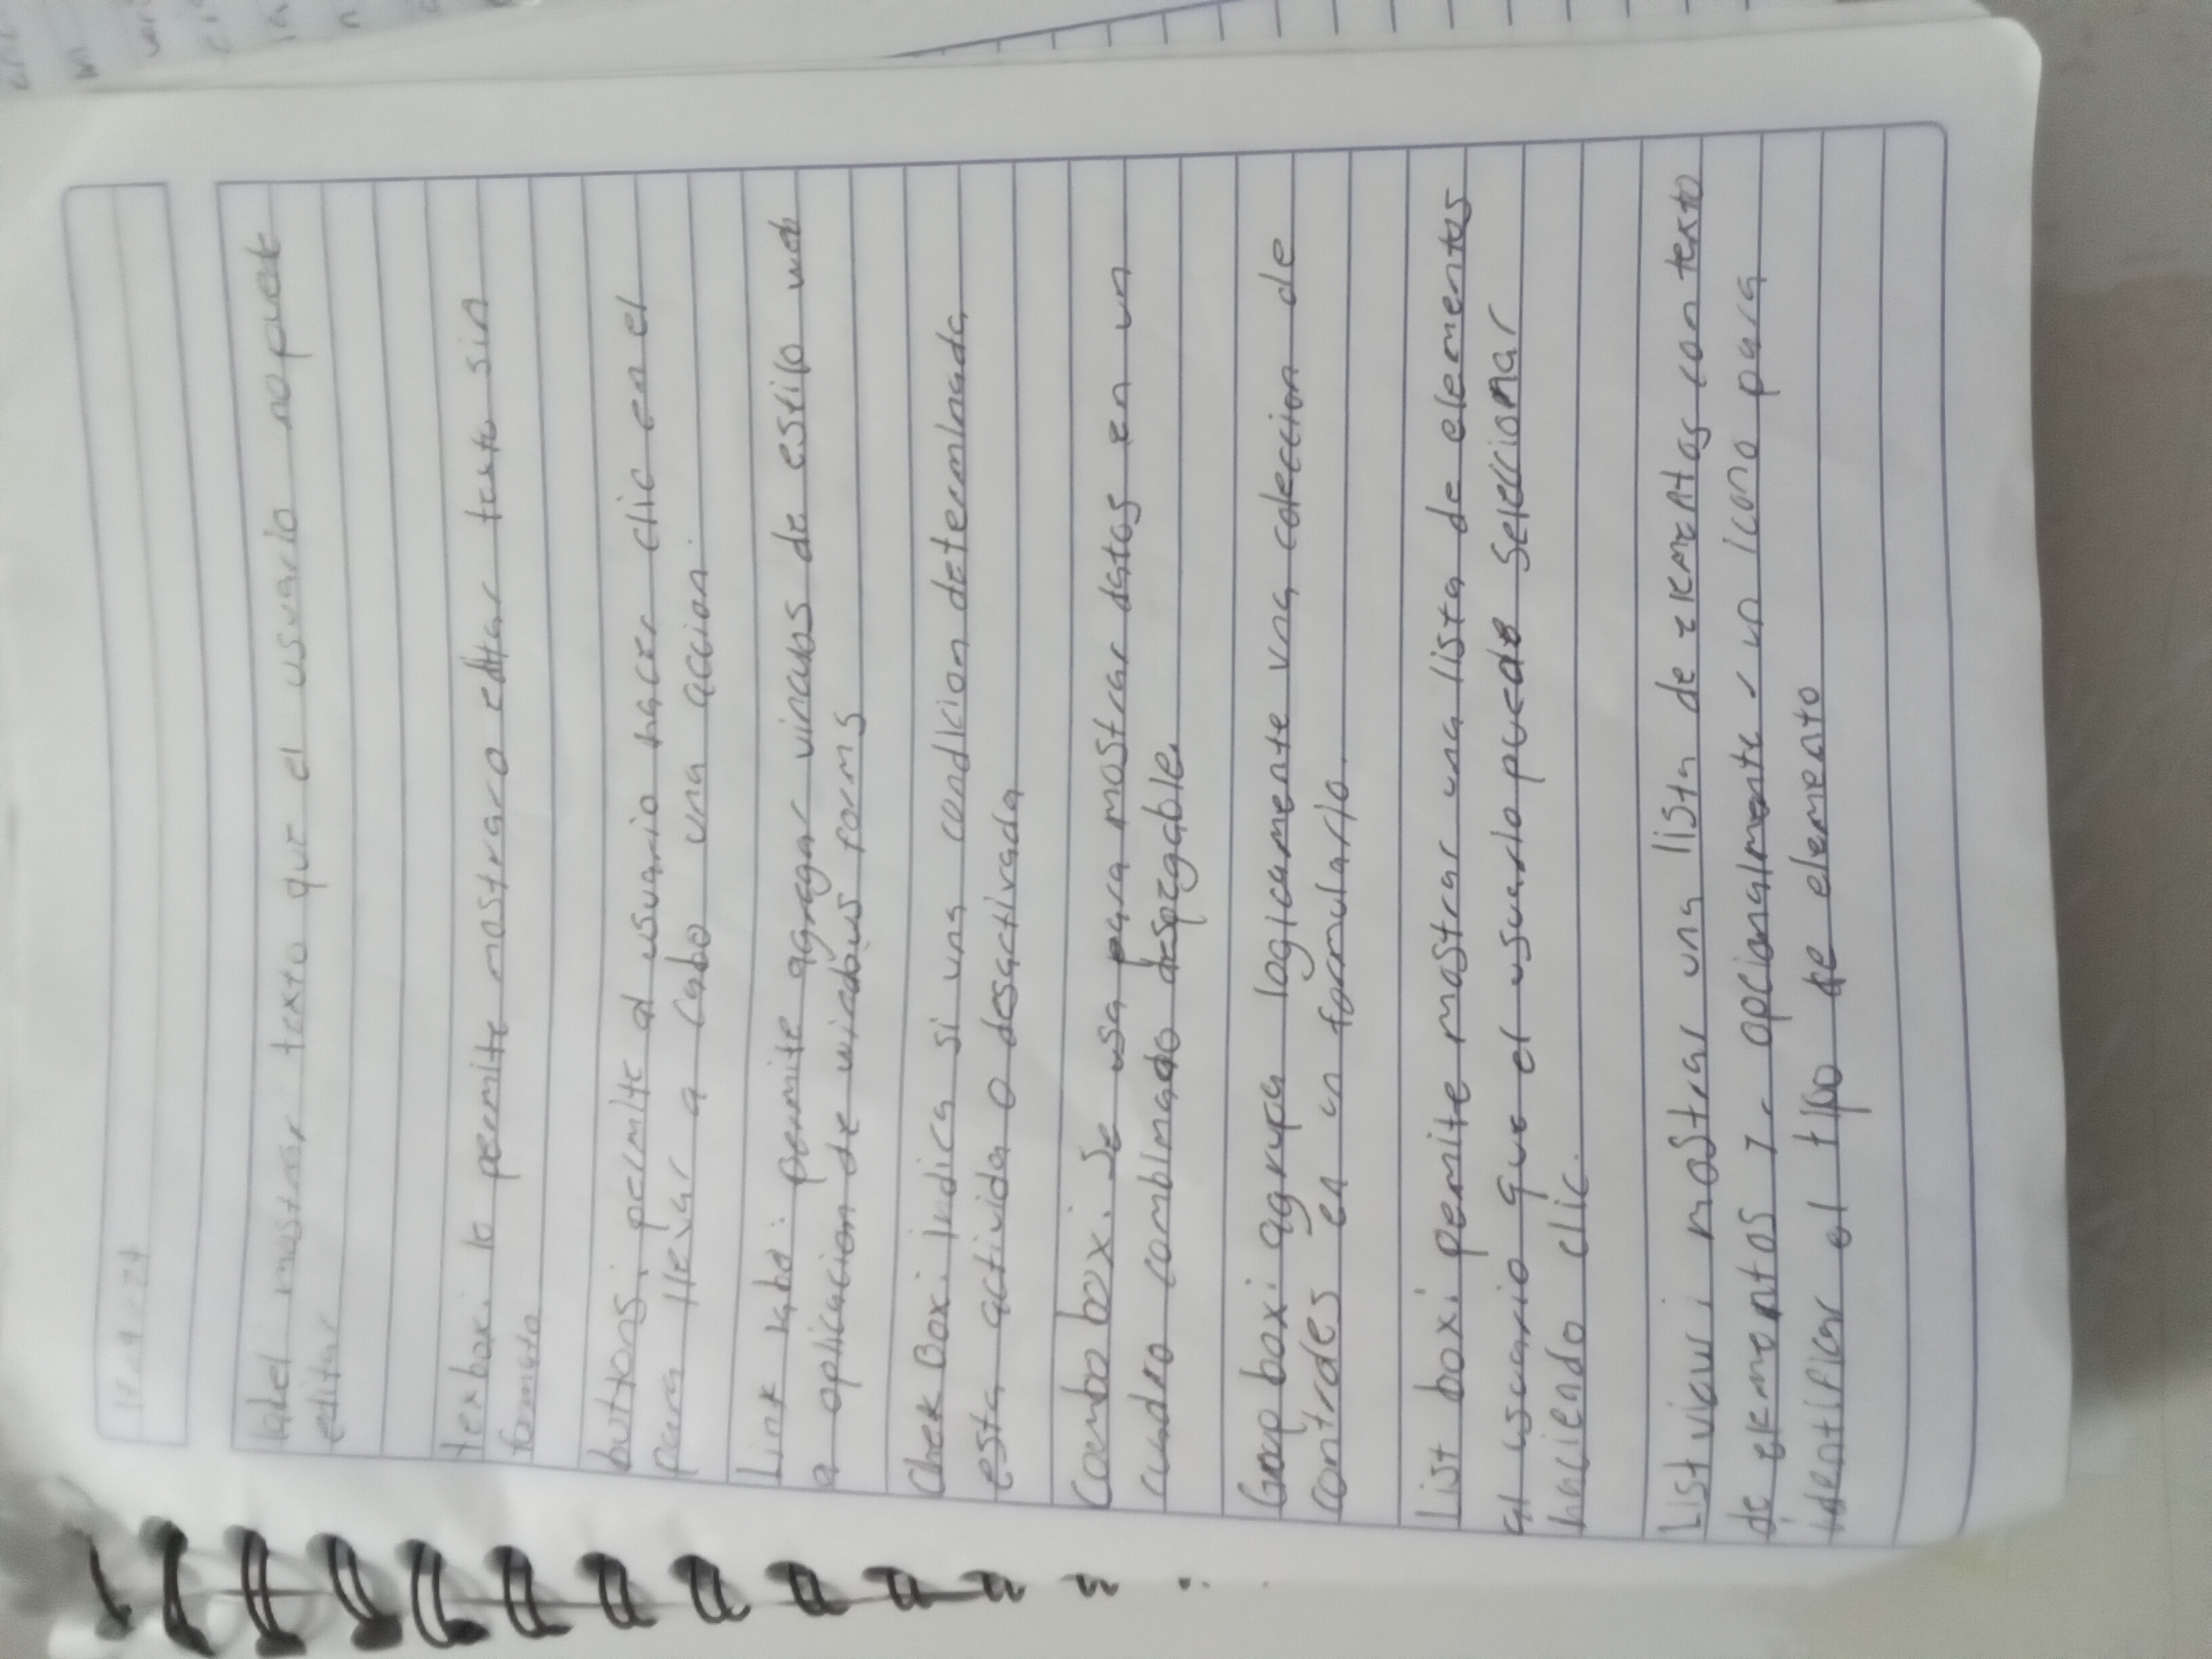 label mostrar texto que el usuario no puede
editar
texbox: lo permite mostrar o editar texto sin
formato
buttons: permite al usuario hacer clic en el
para llevar a cabo una accion.
Link label: permite agregar vinculos de estilo web
a aplicacion de windows forms
Chek Box: Indica si una condicion determinada
esta activida o desactivada
Combo box: Se usa para mostrar datos en un
cuadro combinado despegable.
Group box: agrupa logicamente una coleccion de
controles en un formulario.
List box: permite mostrar una lista de elementos
al usuario que el usuario puede seleccionar
haciendo clic.
List view: mostrar una lista de elementos con texto
de elementos y. opcionalmente, un icono para
identificar el tipo de elemento